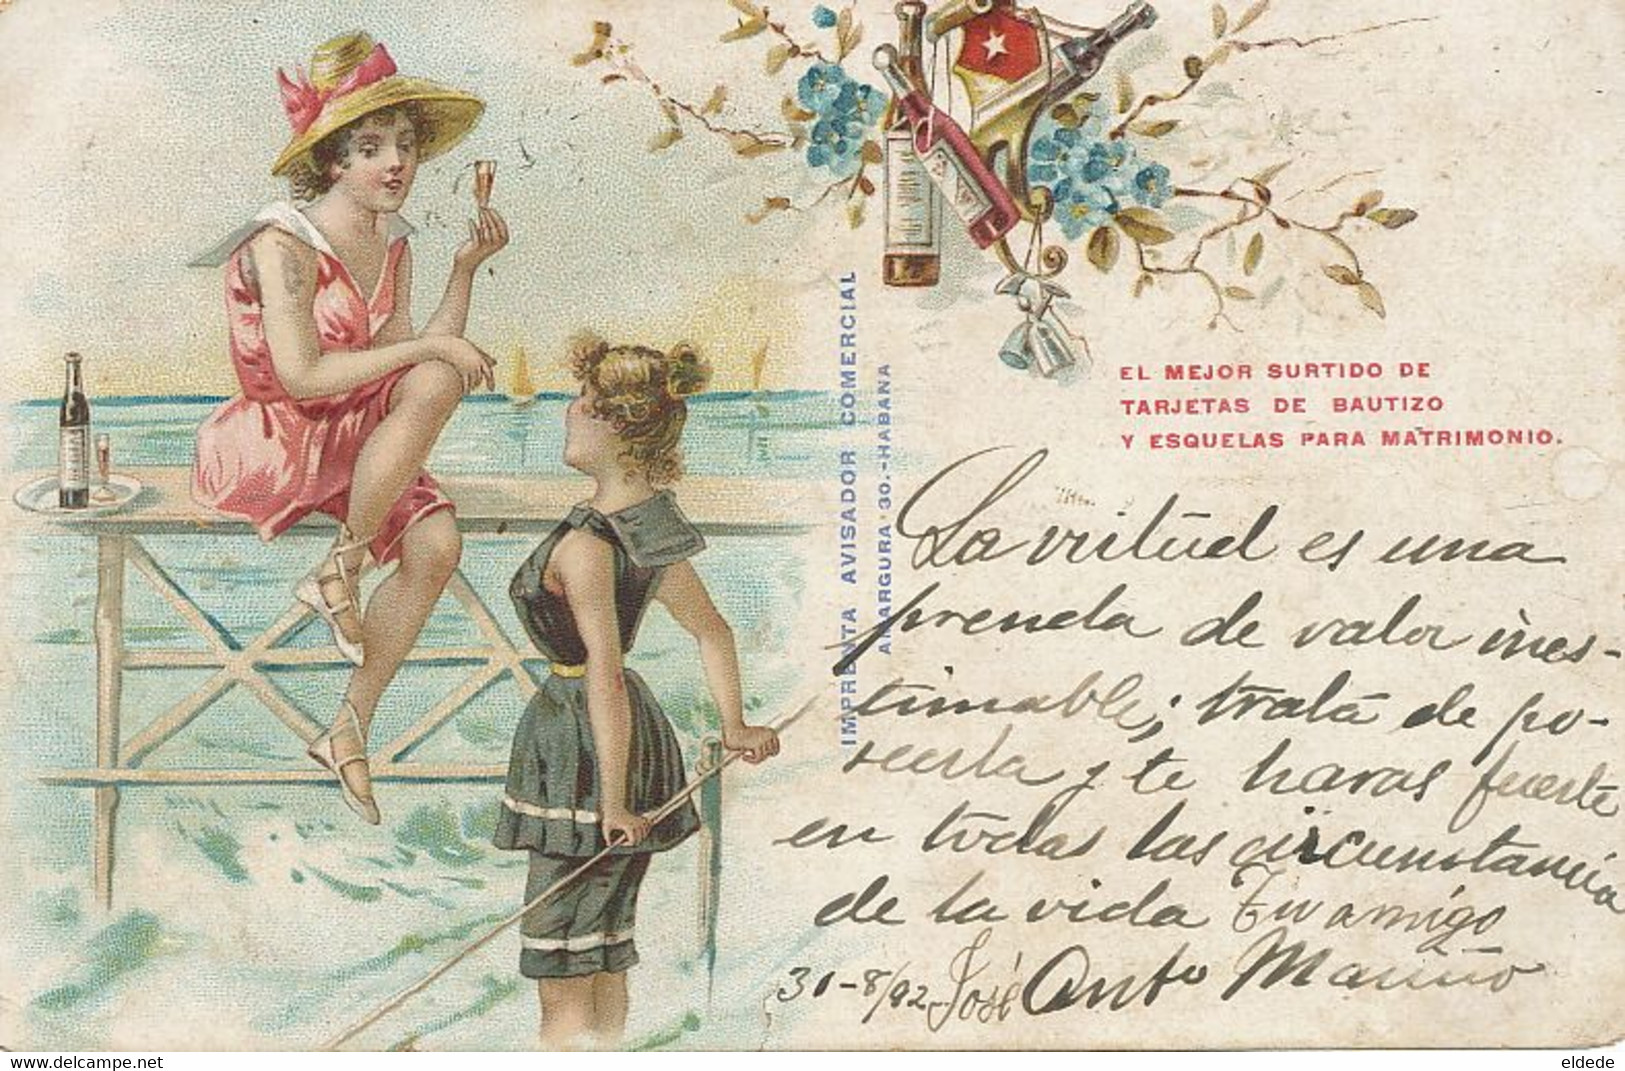 IMPRENTA AVISADOR COMERCIAL
AMARGURA 30.-HABANA
EL MEJOR SURTIDO DE
TARJETAS DE BAUTIZO
Y ESQUELAS PARA MATRIMONIO.
La virtud es una
prenda de valor ines-
timable; trata de po-
seerla y te haras fuerte
en todas las circunstancia
de la vida Tu amigo
31-8/92 José Anto Mariño
delcampe.net
eldede